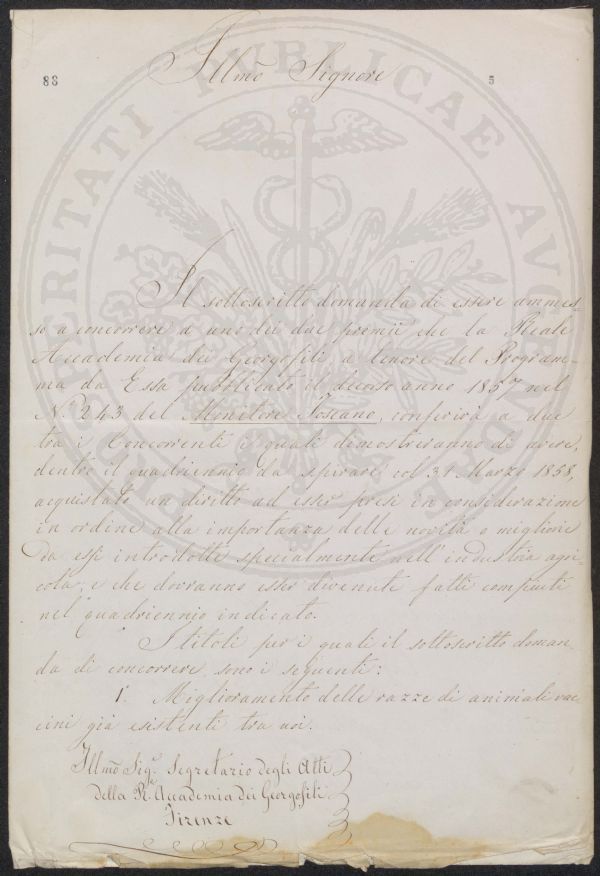 88
5
Illmo Signore
Il sottoscritto domanda di essere ammes-
so a concorrere a uno dei due premii che la Reale
Accademia dei Georgofili a tenore del Program-
ma da Essa pubblicato il decorso anno 1857 nel
N.º 243 del Monitore Toscano, conferirà a due
tra i Concorrenti i quali dimostreranno di avere,
dentro il quadriennio da spirare col 31 Marzo 1858,
acquistato un diritto ad esser presi in considerazione
in ordine alla importanza delle novità o migliorie
da essi introdotte specialmente nell'industria agri-
cola; e che dovranno esser divenute fatti compiuti
nel quadriennio indicato.
I titoli per i quali il sottoscritto doman-
da di concorrere sono i seguenti:
1º. Miglioramento delle razze di animali vac-
cini già esistenti tra noi.
Illmo Sigr. Segretario degli Atti
della Rle. Accademia dei Georgofili
Firenze
PROSPERITATI PUBLICAE AUGENDAE